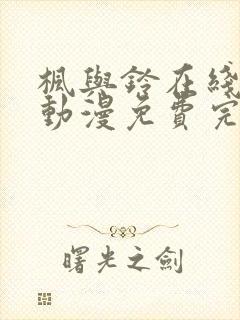 楓與鈴在綫
動漫免費完
曙光之劍